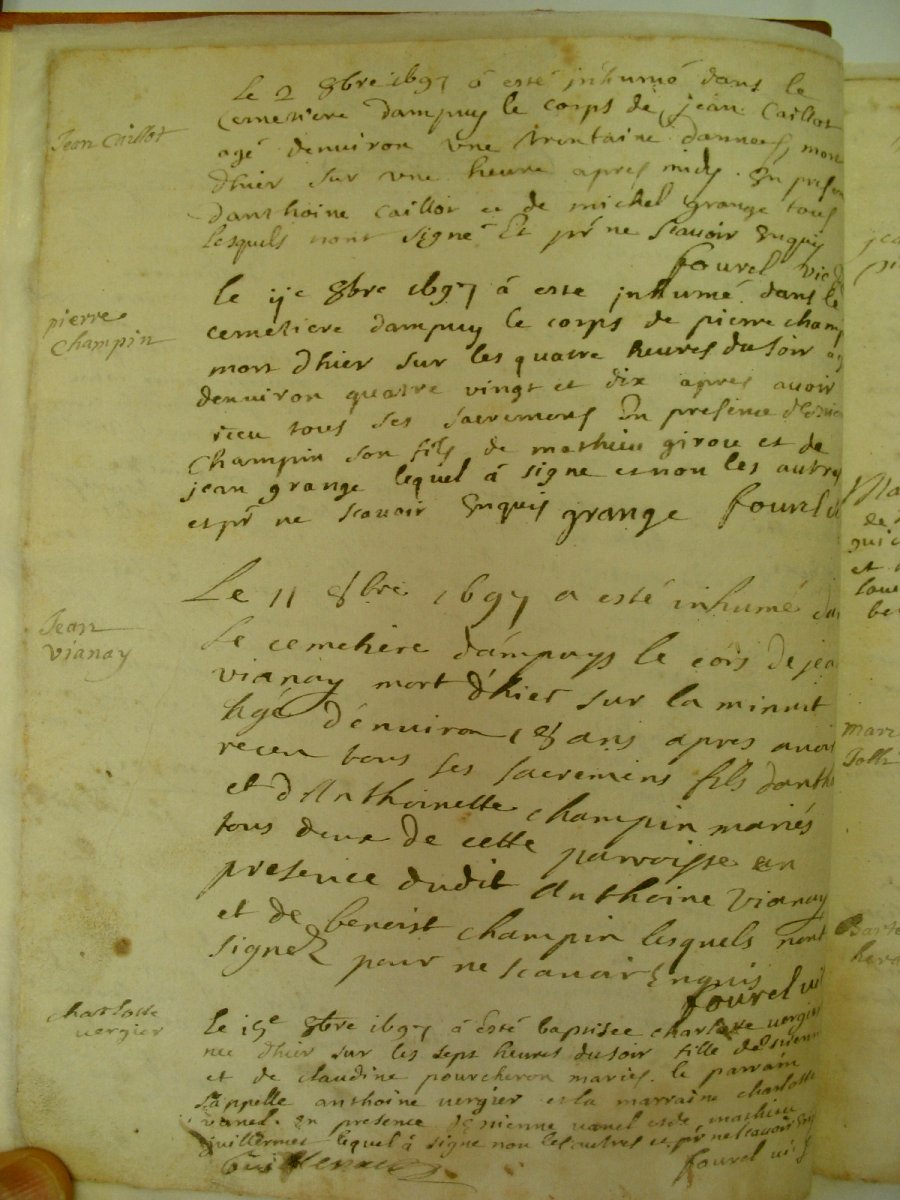 Le 2 8bre 1697 à esté jnhumé dans le
Jean Caillot
cemetiere dampuy le corps de jean Caillot
agé denuiron une trentaine dannees, mort
dhier sur une heure apres midy. En presen
danthoine Caillot et de michel grange tous
lesquels nont signé Et pr ne scauoir Enquis
fourel vic
pierre
Champin
le 8bre 1697 à esté jnhumé dans le
cemetiere dampuy le corps de pierre champ
mort dhier sur les quatre heures du soir ag
denuiron quatre vingt et dix apres auoir
receu tous ses sacremens En presence
Champin son fils de mathieu girou et de
jean grange lequel à signe et non les autres
et pr ne scauoir Enquis grange fourel
Jean
vianay
Le 11 8bre 1697 a esté inhumé dan
Le cemetière d'ampuys le cors de jea
vianay mort d'hier sur la minuit
hgé d'enuiron 18 ans apres auoir
receu tous ses sacremens fils danth
et d'Anthoinette champin mariés
tous deux de cette parroisse en
presence dudit Anthoine vianay
et de benoist champin lesquels nont
signéz pour ne scauoir Enquis
fourel vi
charlotte
vergier
Le 15e 8bre 1697 à Esté baptisée charlotte vergier
nee dhier sur les sept heures du soir fille destienne
et de claudine pourcheron mariés. le parrain
sappelle anthoine vergier et la marraine charlotte
vanel. En presence destienne vanel et de mathieu
guillermet lequel à signe non les autres et pr ne scauoir Enq
fourel vi